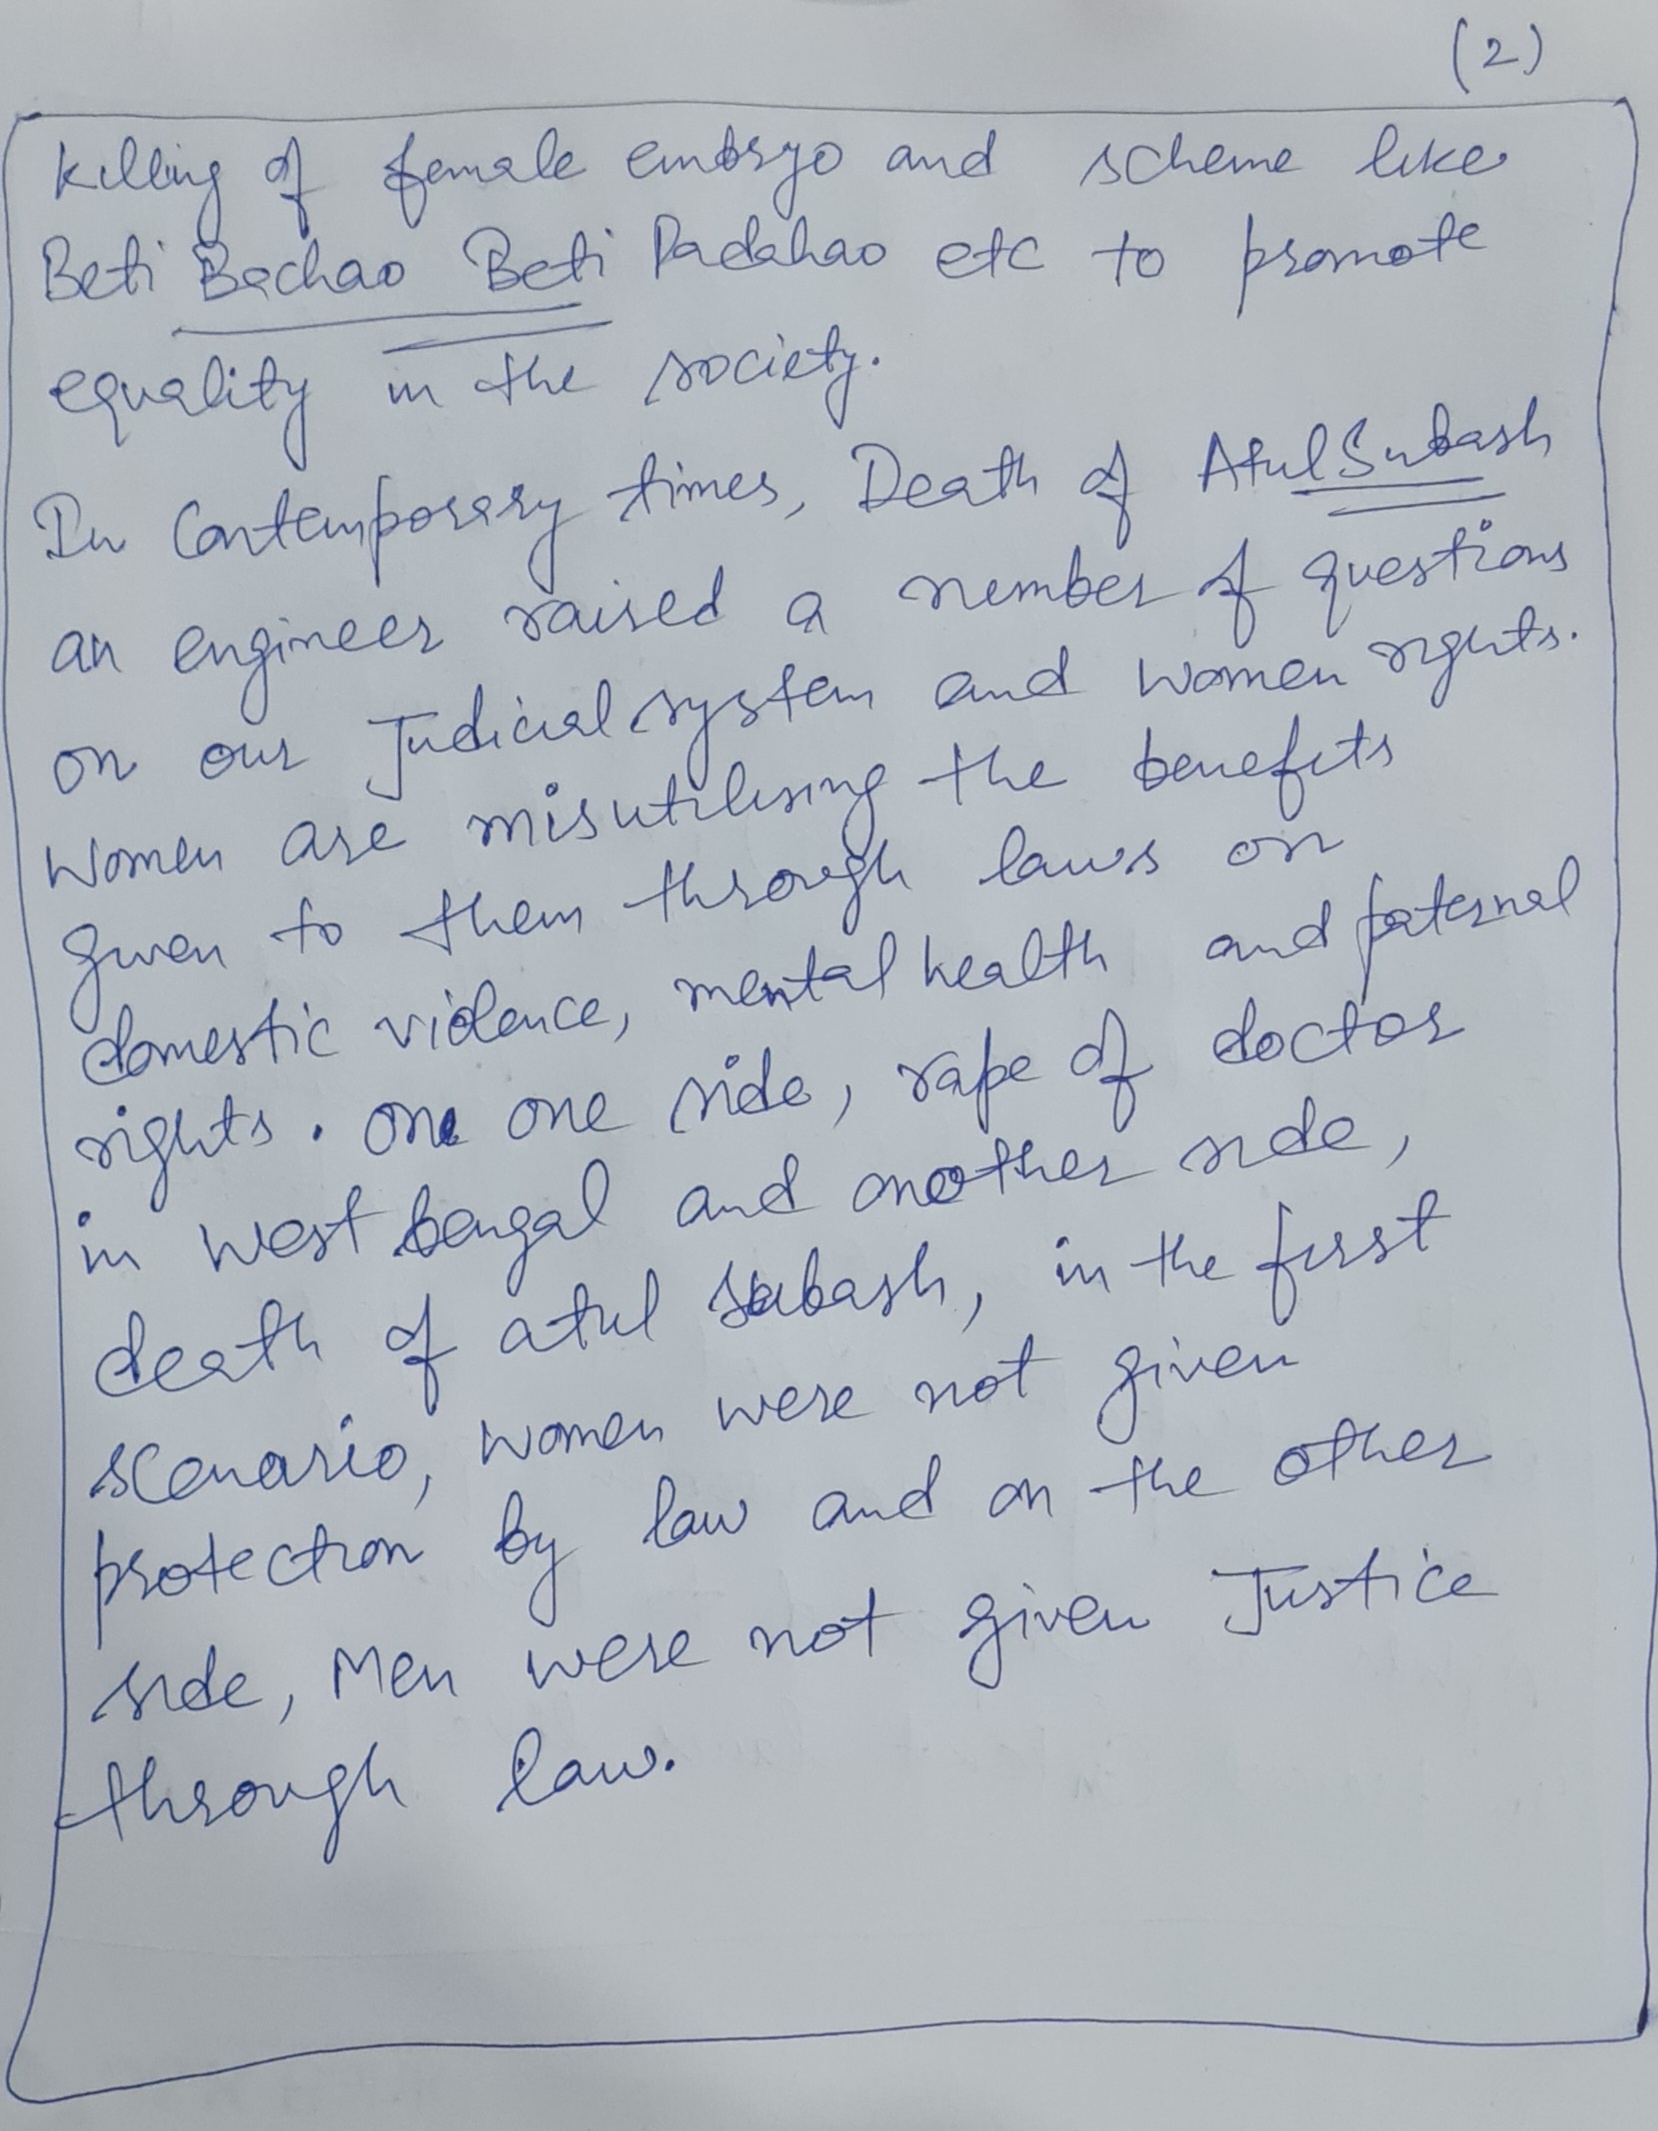 (2)
killing of female embryo and scheme like
Beti Bachao Beti Padahao etc to promote
equality in the society.
In Contemporary times, Death of Atul Subash
an engineer raised a nember of questions
on our Judicial system and women rights.
Women are misutilising the benefits
given to them through laws on
domestic violence, mental health and paternal
rights. one one side, rape of doctor
in west bengal and another side,
death of atul subash, in the first
scenario, women were not given
protection by law and on the other
side, Men were not given Justice
through law.